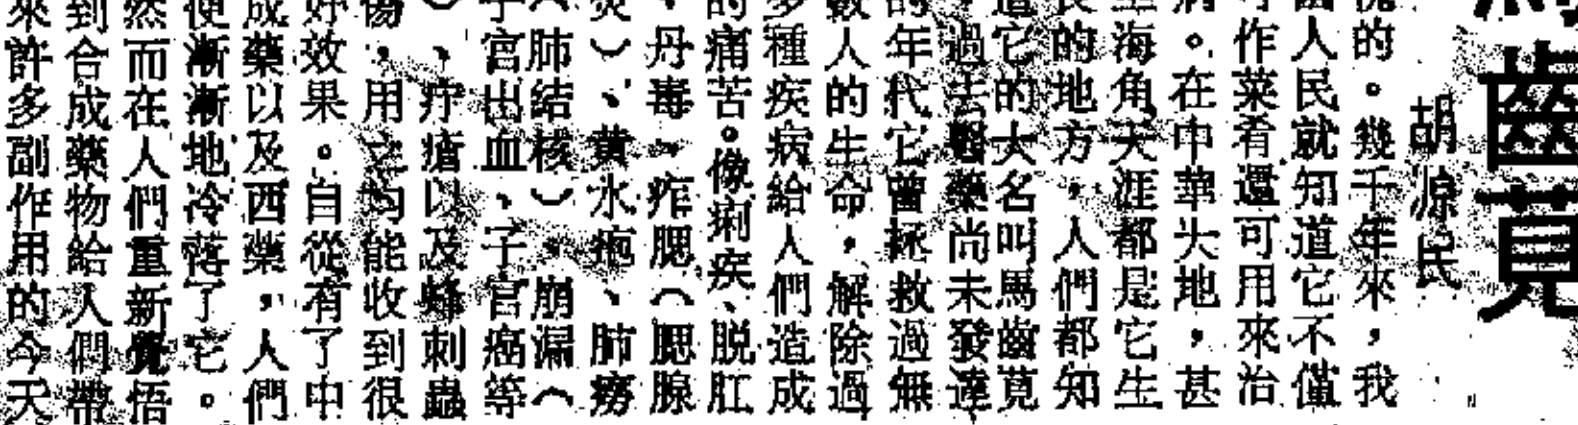 齒莧
胡源民
的。幾千年來，我
人民就知道它不僅
作菜肴還可用來治
。在中華大地，甚
海角天涯都是它生
的地方，人們都知
它的大名叫馬齒莧
過去醫藥尚未發達
的年代它曾拯救過無
數人的生命，解除過
多種疾病給人們造成
的痛苦。像痢疾、脱肛
、丹毒、痄腮（腮腺
炎）、黄水疱、肺癆
（肺結核）。崩漏（
子宮出血、子宮癌等
）、疔瘡以及蜂刺蟲
傷，用之均能收到很
好效果。自從有了中
成藥以及西藥，人們
便漸漸地冷落了它。
然而在人們重新覺悟
到合成藥物給人們帶
來許多副作用的今天